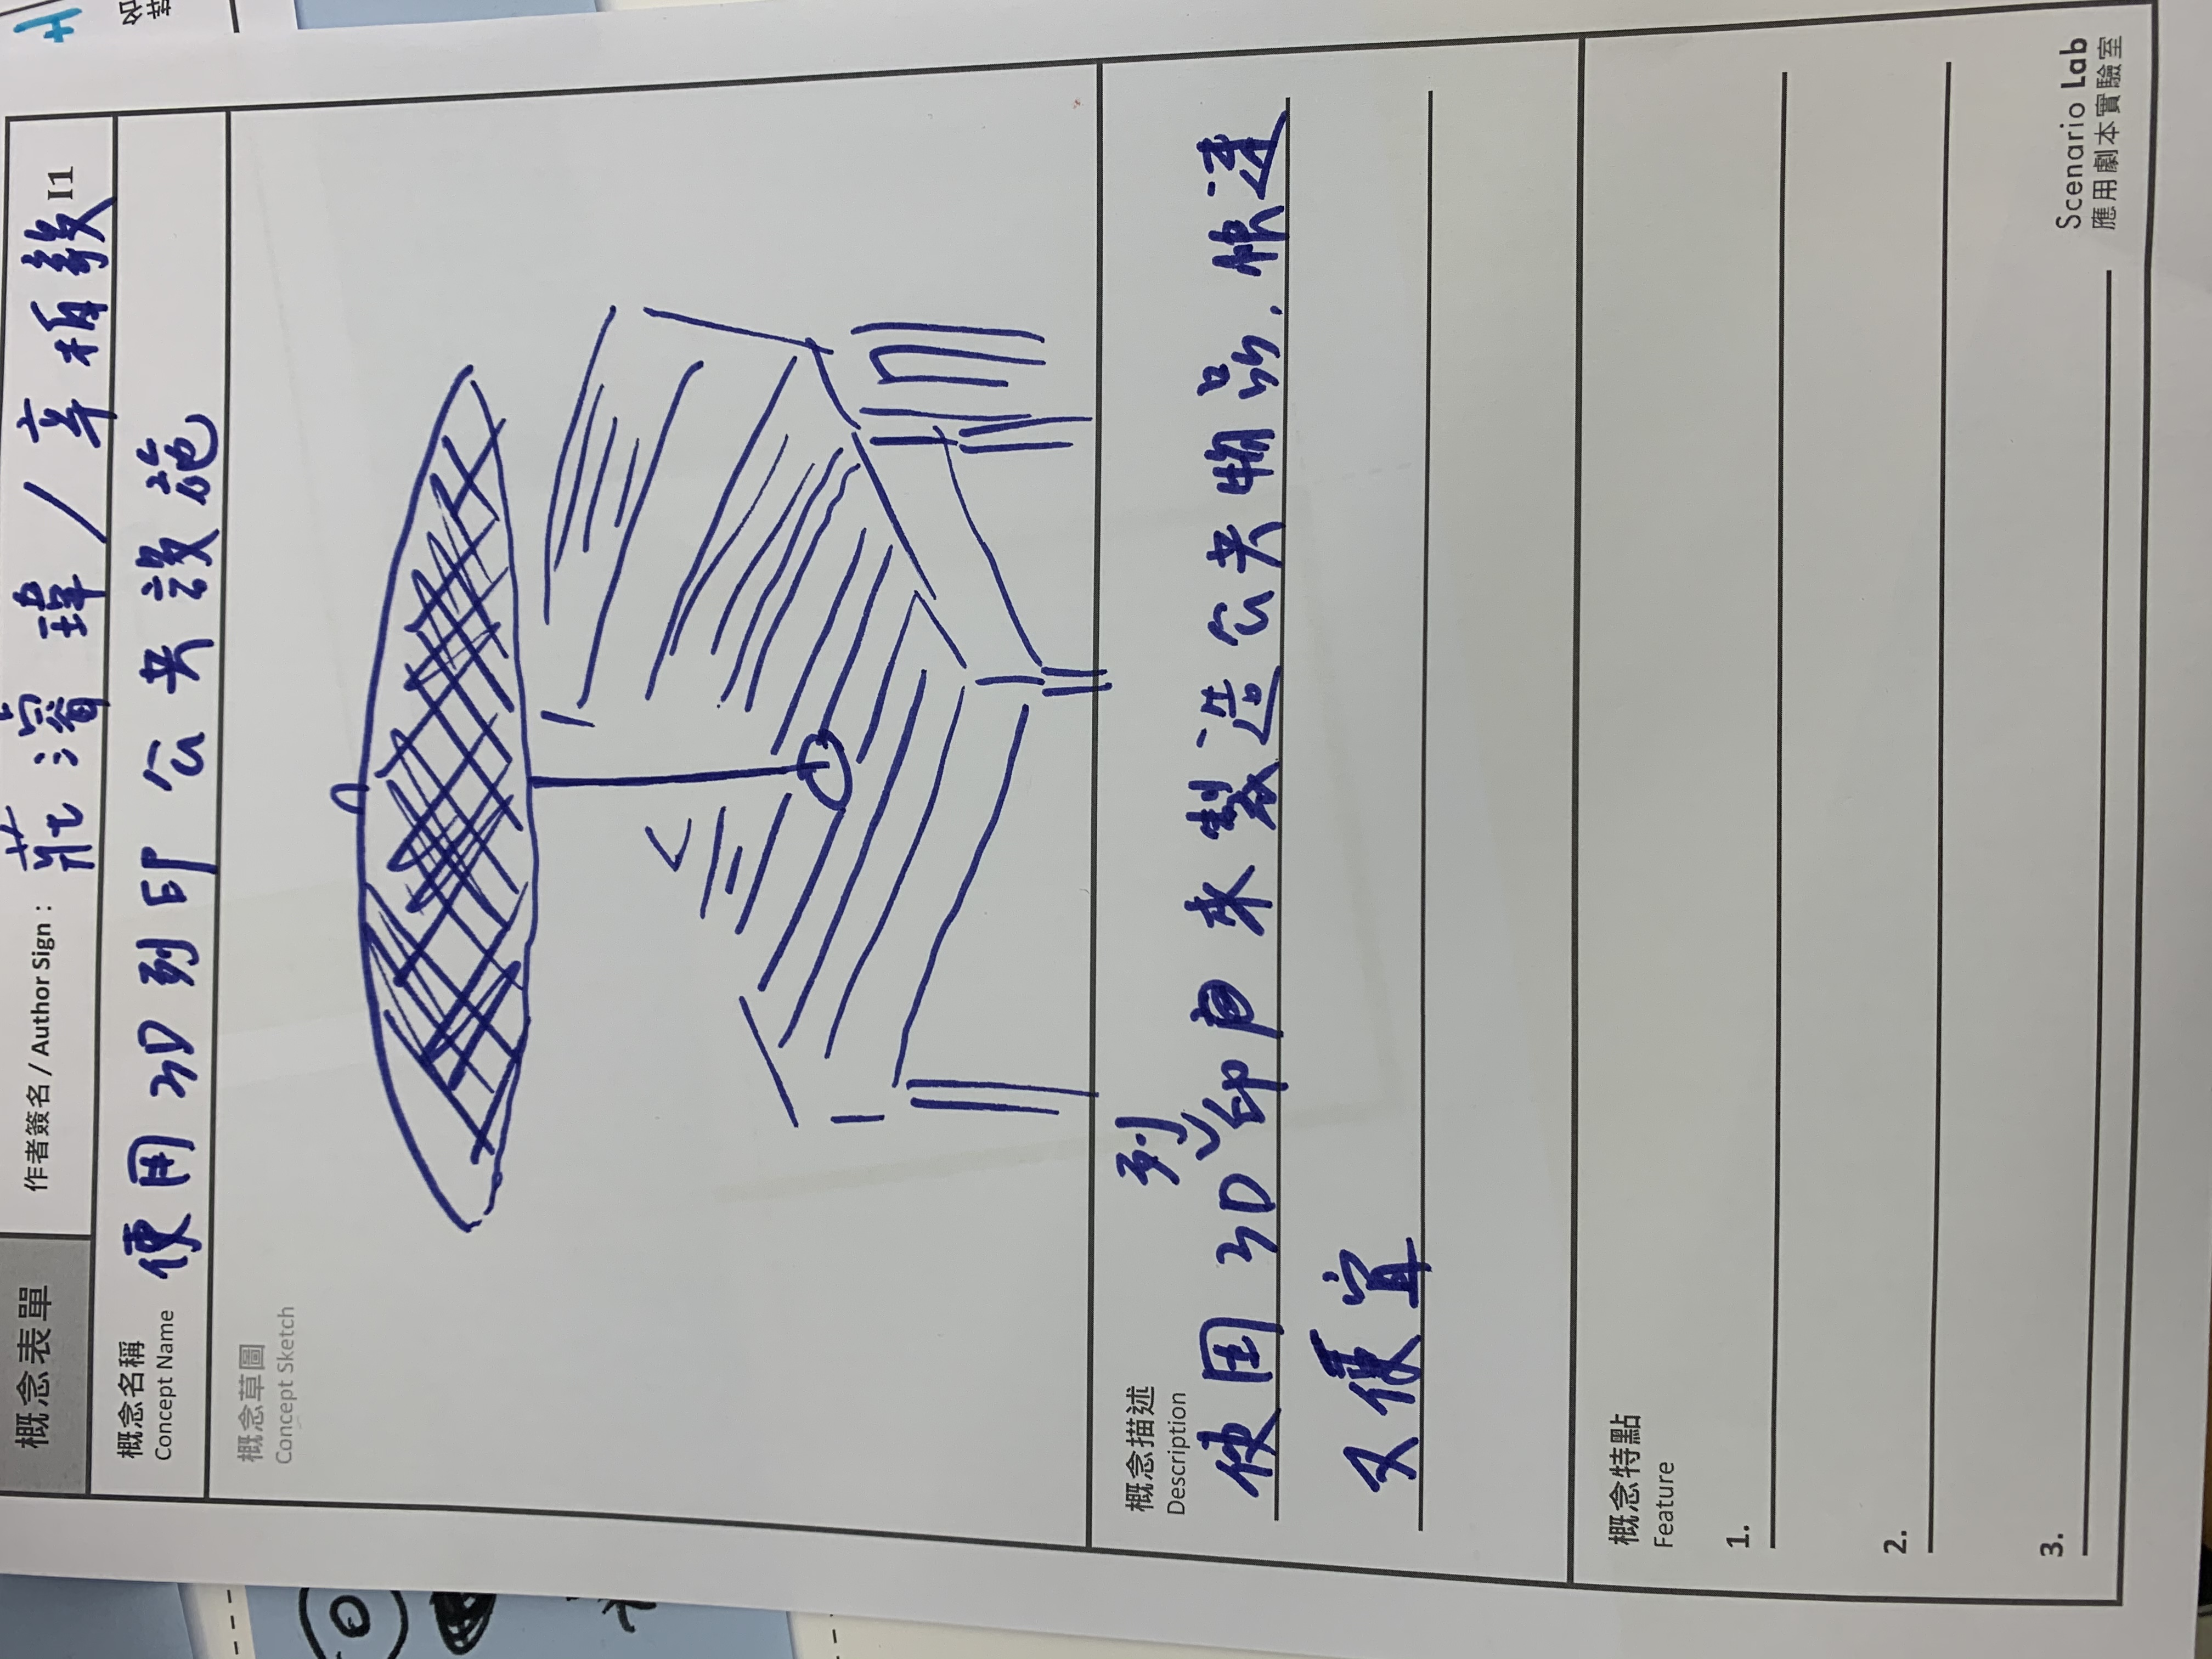 概念表單
作者簽名 / Author Sign : 莊濬瑋 / 辛柏毅 I1
概念名稱
Concept Name
使用3D列印公共設施
概念草圖
Concept Sketch
概念描述
Description
使用3D列印來製造公共物品.快速
又便宜
概念特點
Feature
1.
2.
3.
Scenario Lab
應用劇本實驗室
姓名